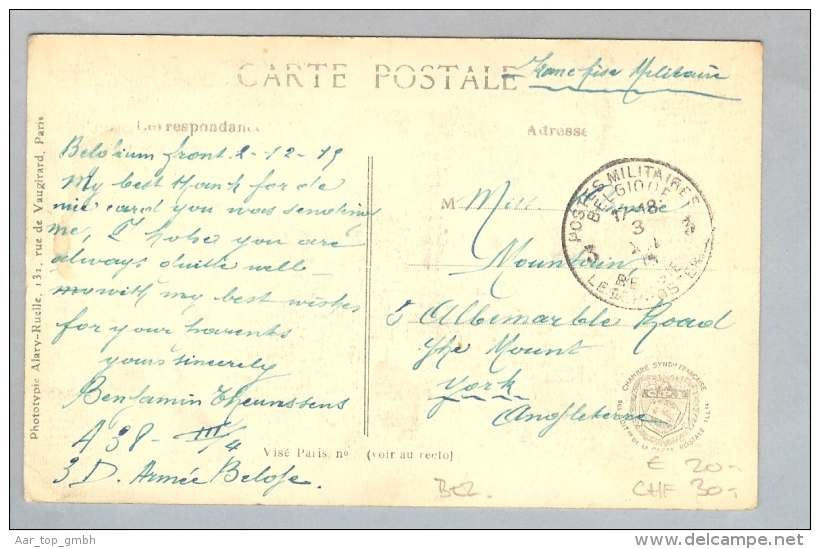 CARTE POSTALE
Franchise Militaire
Correspondance
Adresse
Belgium front. 2-12-19
My best thank for de
nice card you was sending
me, I hope you are
always quite well
with my best wishes
for your parents
yours sincerely
Benjamin Theunssens
A 38 - III/4
3 D. Armée Belge.
M Mlle
Mountain,
5 Albemarble Road
The Mount
York
Angleterre
POSTES MILITAIRES
BELGIQUE
17-18
3
3
Phototypie Alary-Ruelle, 131, rue de Vaugirard, Paris
Visé Paris, no (voir au recto)
CHAMBRE SYNDle FRANCAISE
DE LA CARTE POSTALE ILLée
BEL.
€ 20.-
CHF 30.-
Aar_top_gmbh
www.delcampe.net